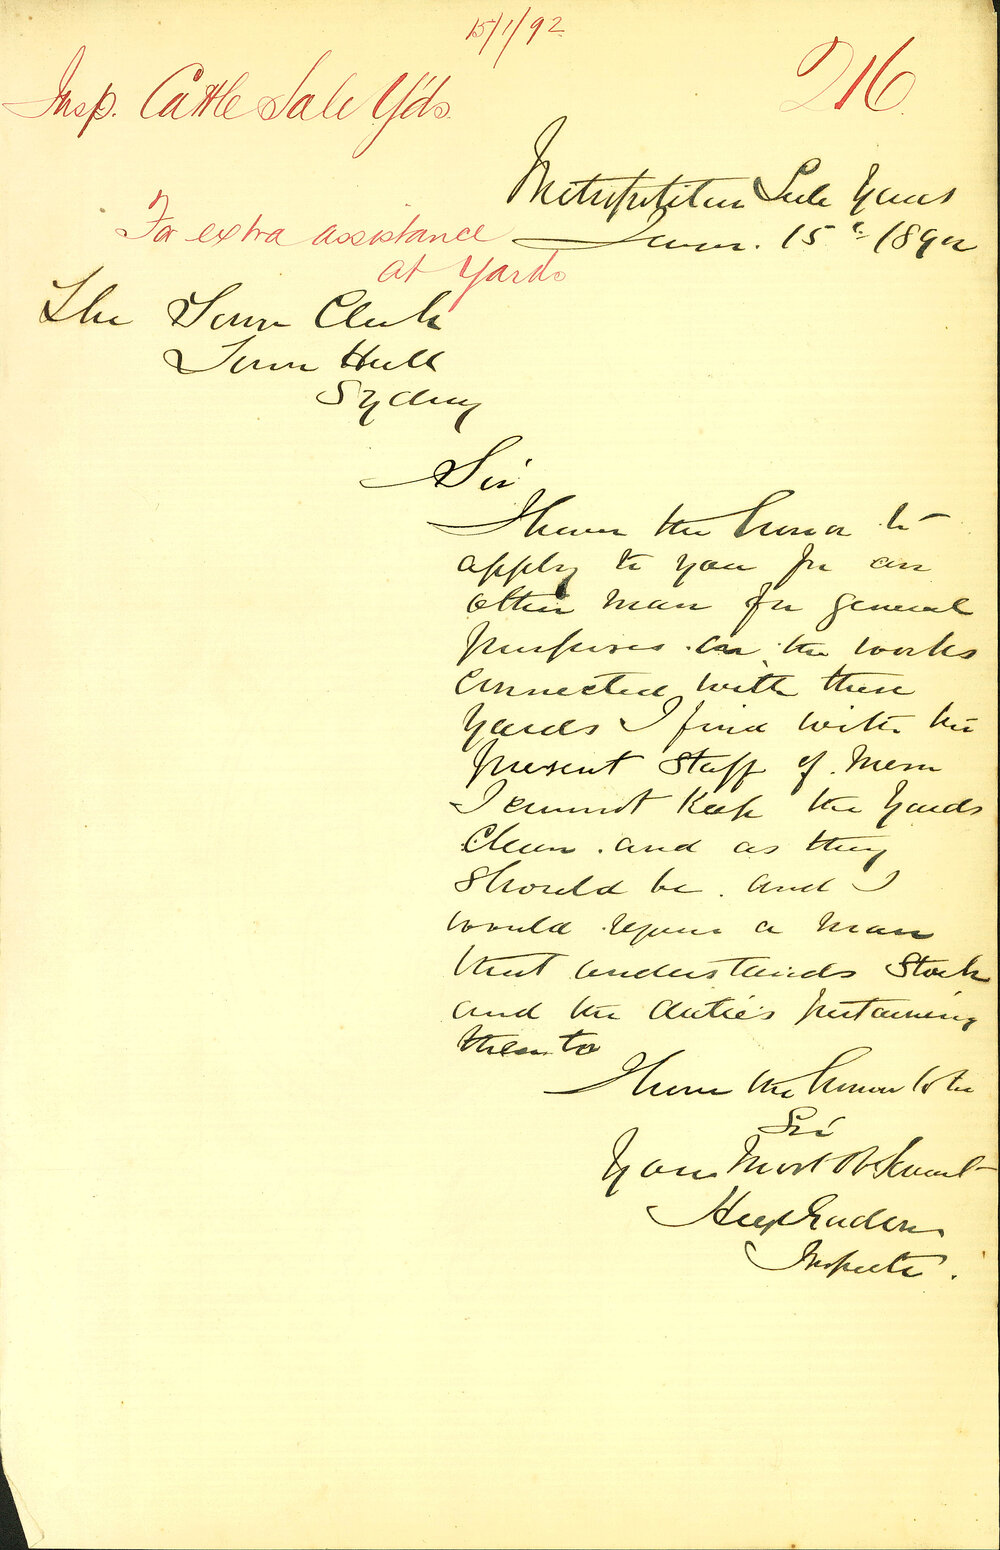 15/1/92
Insp. Cattle Sale Yds.
216
Metropolitan Sale Yards
15th 1892
For extra assistance
at Yards
The Town Clerk
Town Hall
Sydney
Sir
I have the honor to
apply to you for an
other man for general
purposes on the works
connected with these
Yards I find with the
present Staff of Men
I cannot Keep the Yards
Clean and as they
should be and I
would require a man
that understands Stock
and the duties pertaining
thereto
I have the honor to be
Sir
Your Most Ob Servant
Inspector.